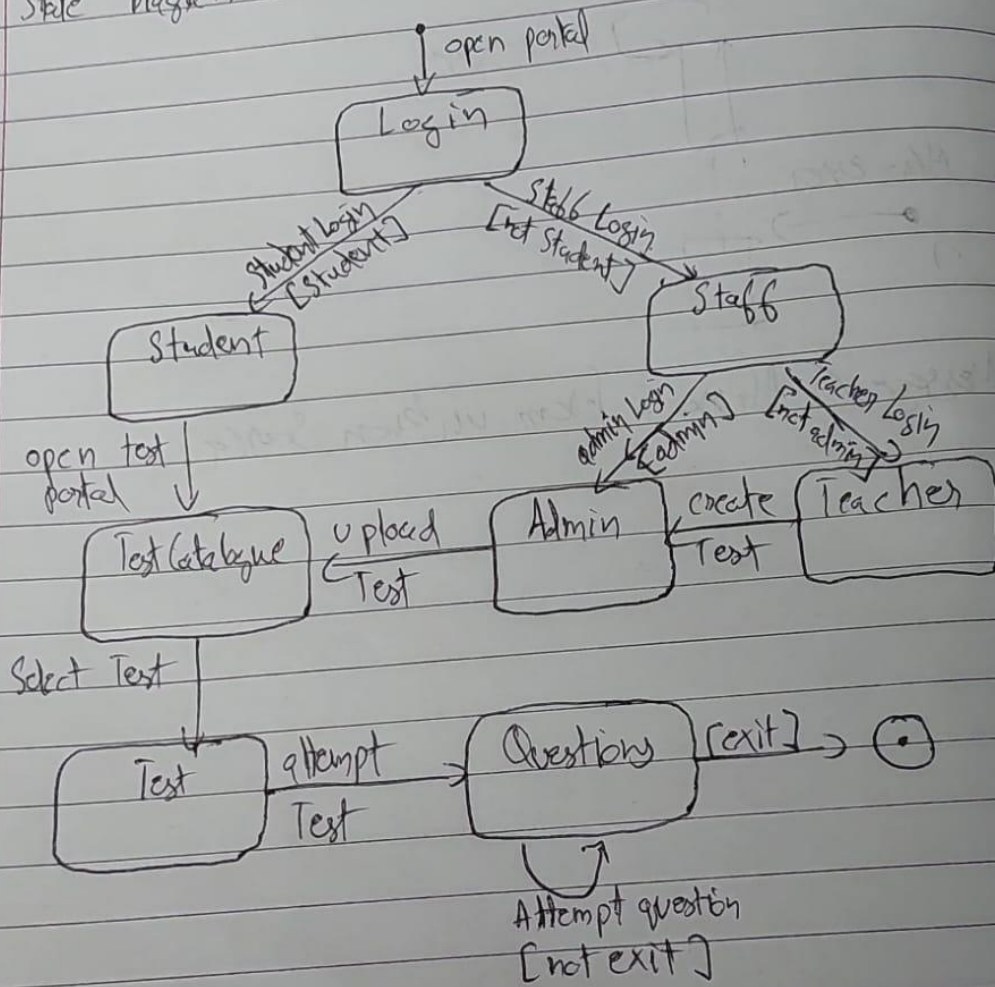 State
open portal
Login
Student Login
[Student]
Staff Login
[not Student]
Student
Staff
admin Login
[admin]
Teacher Login
[not admin]
open test
portal
Test Catalogue
upload
Test
Admin
create
Test
Teacher
Select Test
Test
attempt
Test
Questions
[exit]
Attempt question
[not exit]